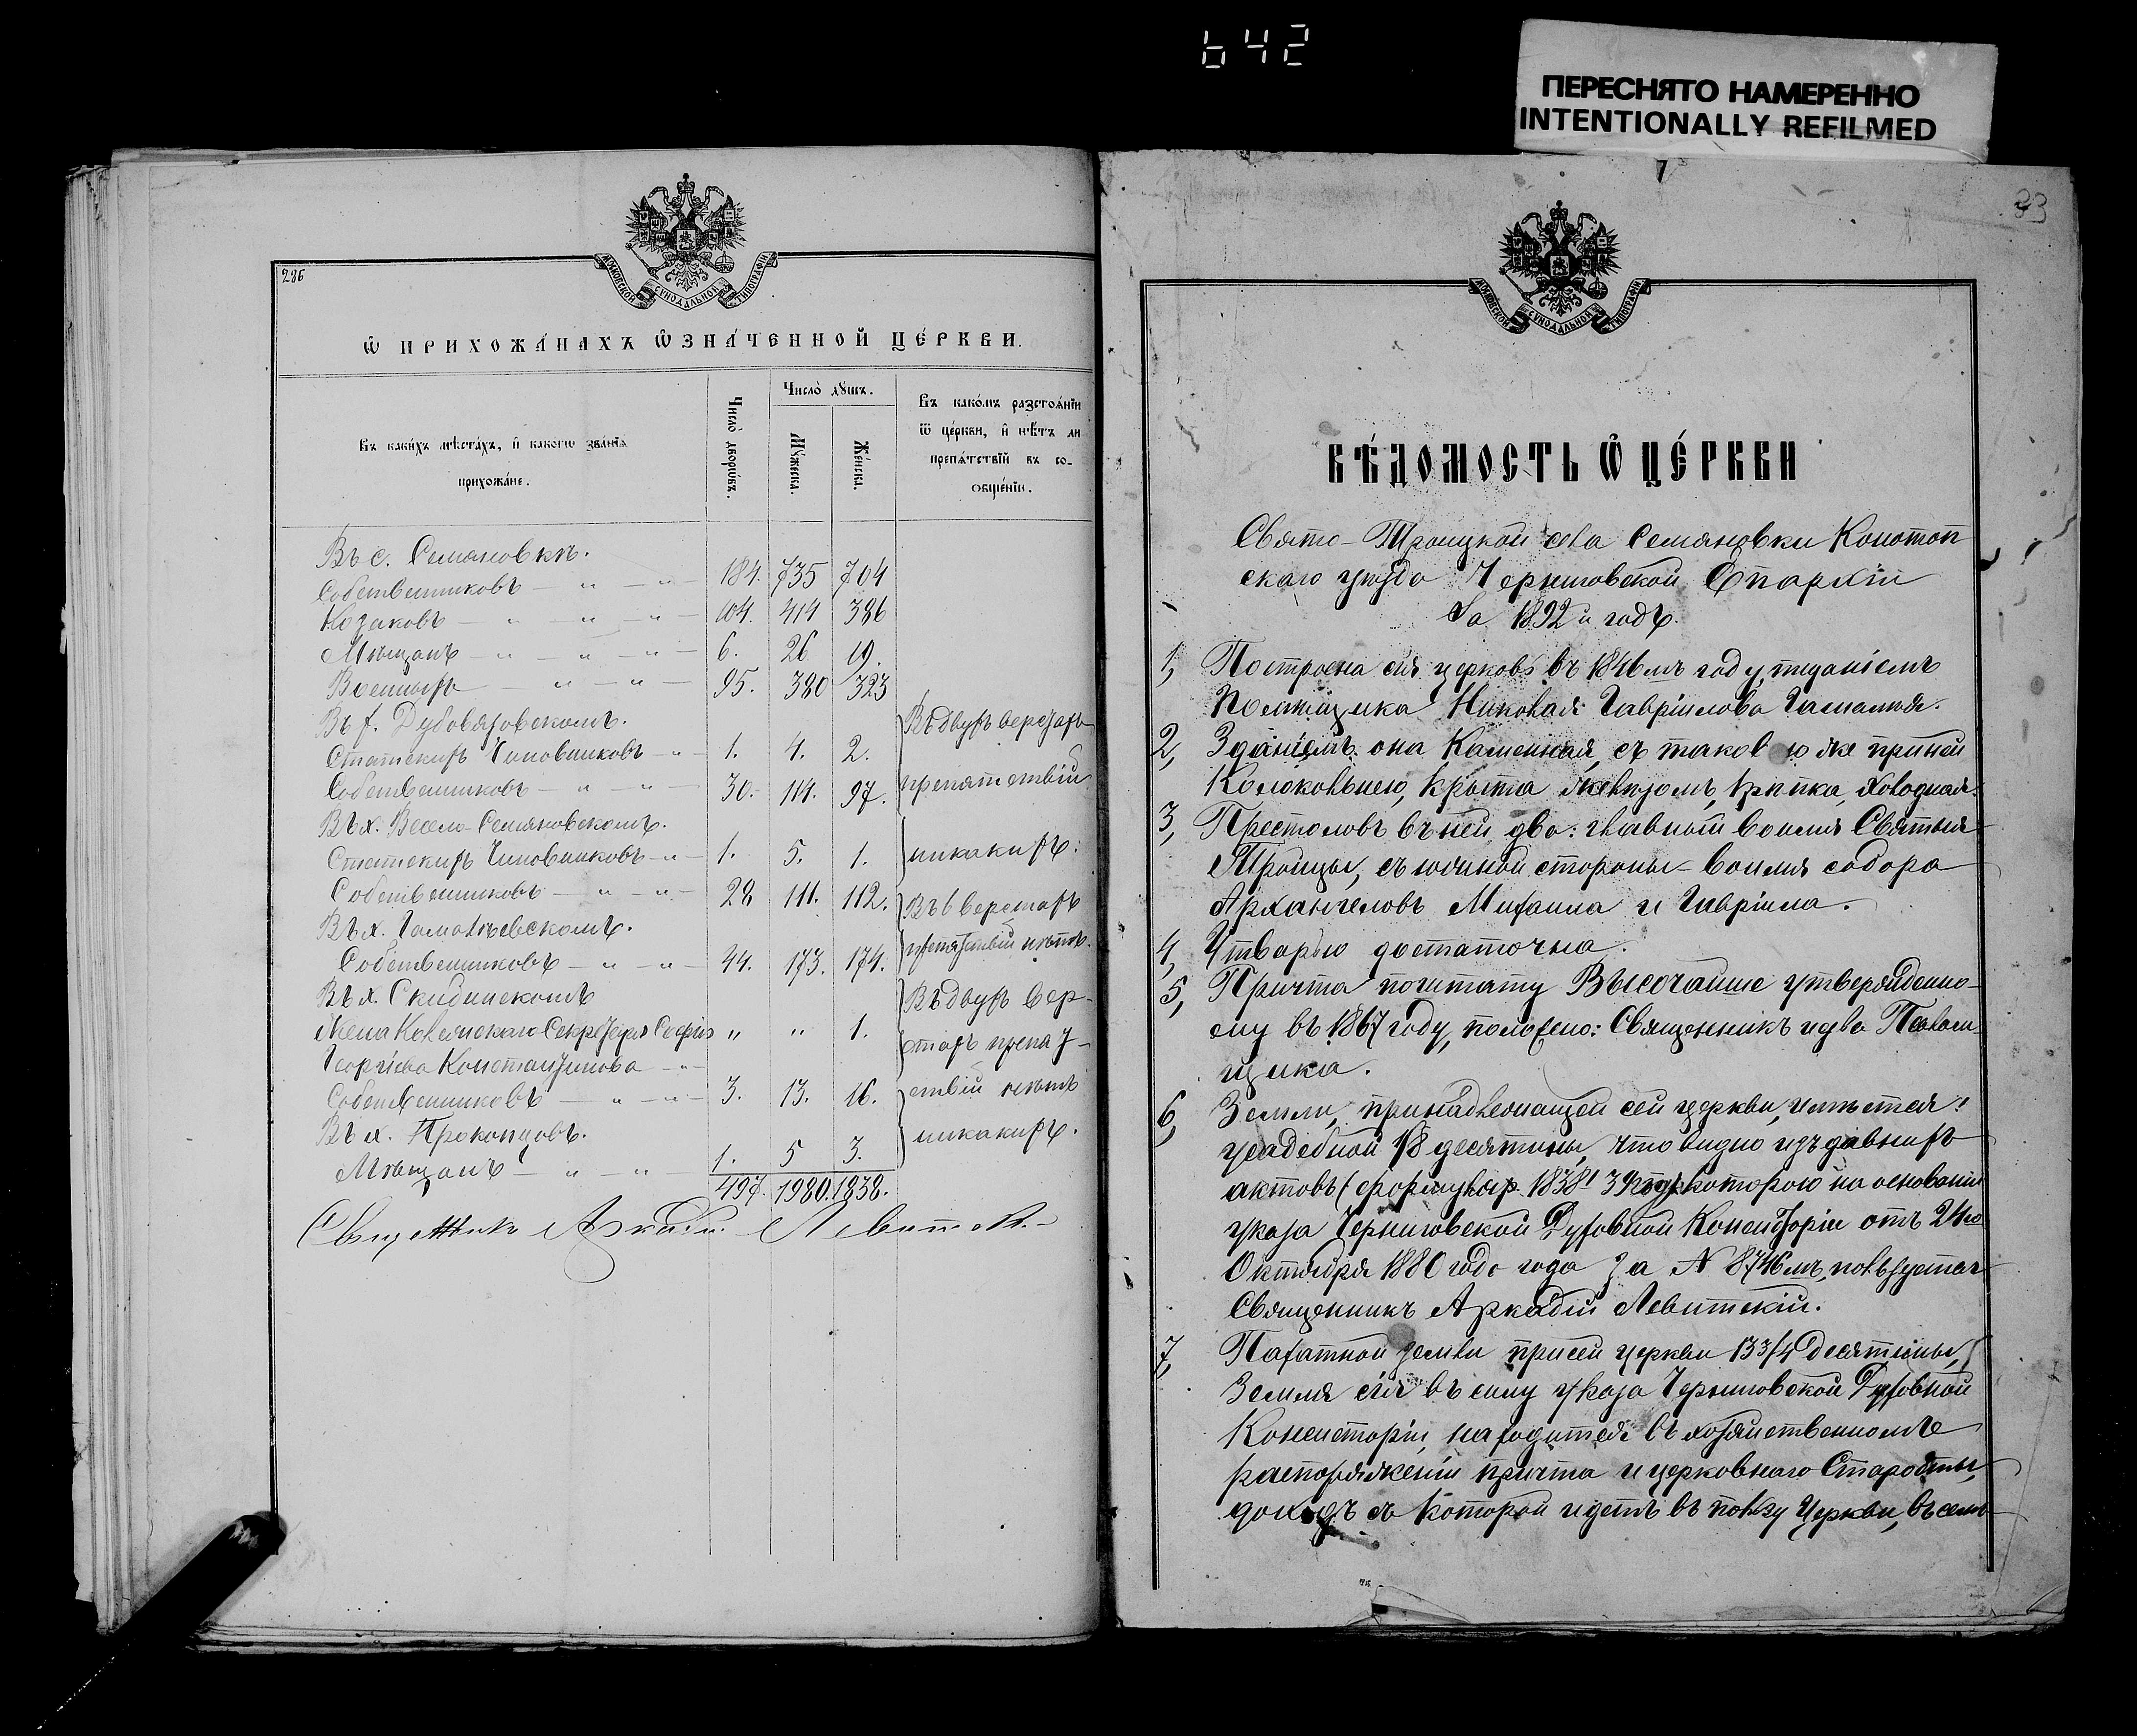 642
ПЕРЕСНЯТО НАМЕРЕННО
INTENTIONALLY REFILMED
286
МОСКОВСКОЙ СѴНОДАЛЬНОЙ ТИПОГРАФІИ
Ѡ ПРИХОЖА́НАХЪ Ѡ҆ЗНА́ЧЕННОЙ ЦЕ́РКВИ.
Въ каки́хъ мѣ́стахъ, и҆ какого̀ зва́нїѧ прихожа́не.
Число̀ дворѡ́въ.
Число̀ дꙋ́шъ.
Мꙋ́жеска.
Же́нска.
Въ како́мъ разстоѧ́нїи
ѿ це́ркви, и҆ нѣ́тъ ли
препѧ́тствїй въ со-
ѻбще́нїи.
Въ с. Семяновкѣ.
Собственниковъ — „ — „ — 184. 735 704
Козаковъ — „ — „ — „ — 104. 414 386
Мѣщанъ — „ — „ — „ — 6. 26 19.
Военныхъ — „ — „ — 95. 380 323
Въ х. Дубовязовскомъ.
Статскихъ Чиновниковъ — „ — 1. 4. 2.
Собственниковъ — „ — „ — 30. 114. 97.
Въ двухъ верстахъ
препятствій
никакихъ.
Въ х. Весело-Семяновскомъ.
Статскихъ Чиновниковъ — „ — 1. 5. 1.
Собственниковъ — „ — „ — 28 111. 112.
Въ х. Гамалѣевскомъ.
Собственниковъ — „ — „ — 44. 173. 174.
Въ 6 верстахъ
препятствій нѣтъ.
Въ х. Скидинскомъ
Жена Коллежскаго Секретаря Софія „ „ 1.
Георгіева Константинова — „ —
Собственниковъ — „ — „ — 3. 13. 16.
Въ х. Прокопцовъ.
Мѣщанъ — „ — „ 1. 5 3.
Въ двухъ вер-
стахъ препят-
ствій нѣтъ
никакихъ.
497. 1980. 1838.
Священникъ Аркадій Левитскій
33
МОСКОВСКОЙ СѴНОДАЛЬНОЙ ТИПОГРАФІИ
ВѢ́ДОМОСТЬ Ѡ҆ ЦЕ́РКВИ
Свято-Троицкой села Семяновки Конотоп
скаго уѣзда Черниговской Епархіи
За 1892й годъ.
1, Построена сія церковь въ 1846мъ году, тщаніемъ
Помѣщика Николая Гавріилова Гамалѣя.
2, Зданіемъ она Каменная, съ таковою же при ней
Колокольнею, крыта желѣзомъ, крѣпка, холодная.
3, Престоловъ въ ней два: главный во имя Святыя
Троицы, съ южной стороны — во имя собора
Архангеловъ Михаила и Гавріила.
4, Утварью достаточна.
5, Причта по штату Высочайше утвержденно-
му въ 1867 году, положено: Священникъ и два Псалом
щика.
6, Земли, принадлежащей сей церкви, имѣется:
усадебной 1/8 десятины, что видно изъ давнихъ
актовъ 1838 и 39 годъ которою на основаніи
указа Черниговской Духовной Консисторіи отъ 24го
Октября 1880 года за № 8746мъ, пользуется
Священникъ Аркадій Левитскій.
7, Пахатной земли при сей церкви 13 3/4 десятины,
Земля сія въ силу указа Черниговской Духовной
Консисторіи, находится въ хозяйственномъ
распоряженіи причта и церковнаго Старосты,
доходъ съ которой идетъ въ пользу Церкви, въ семъ